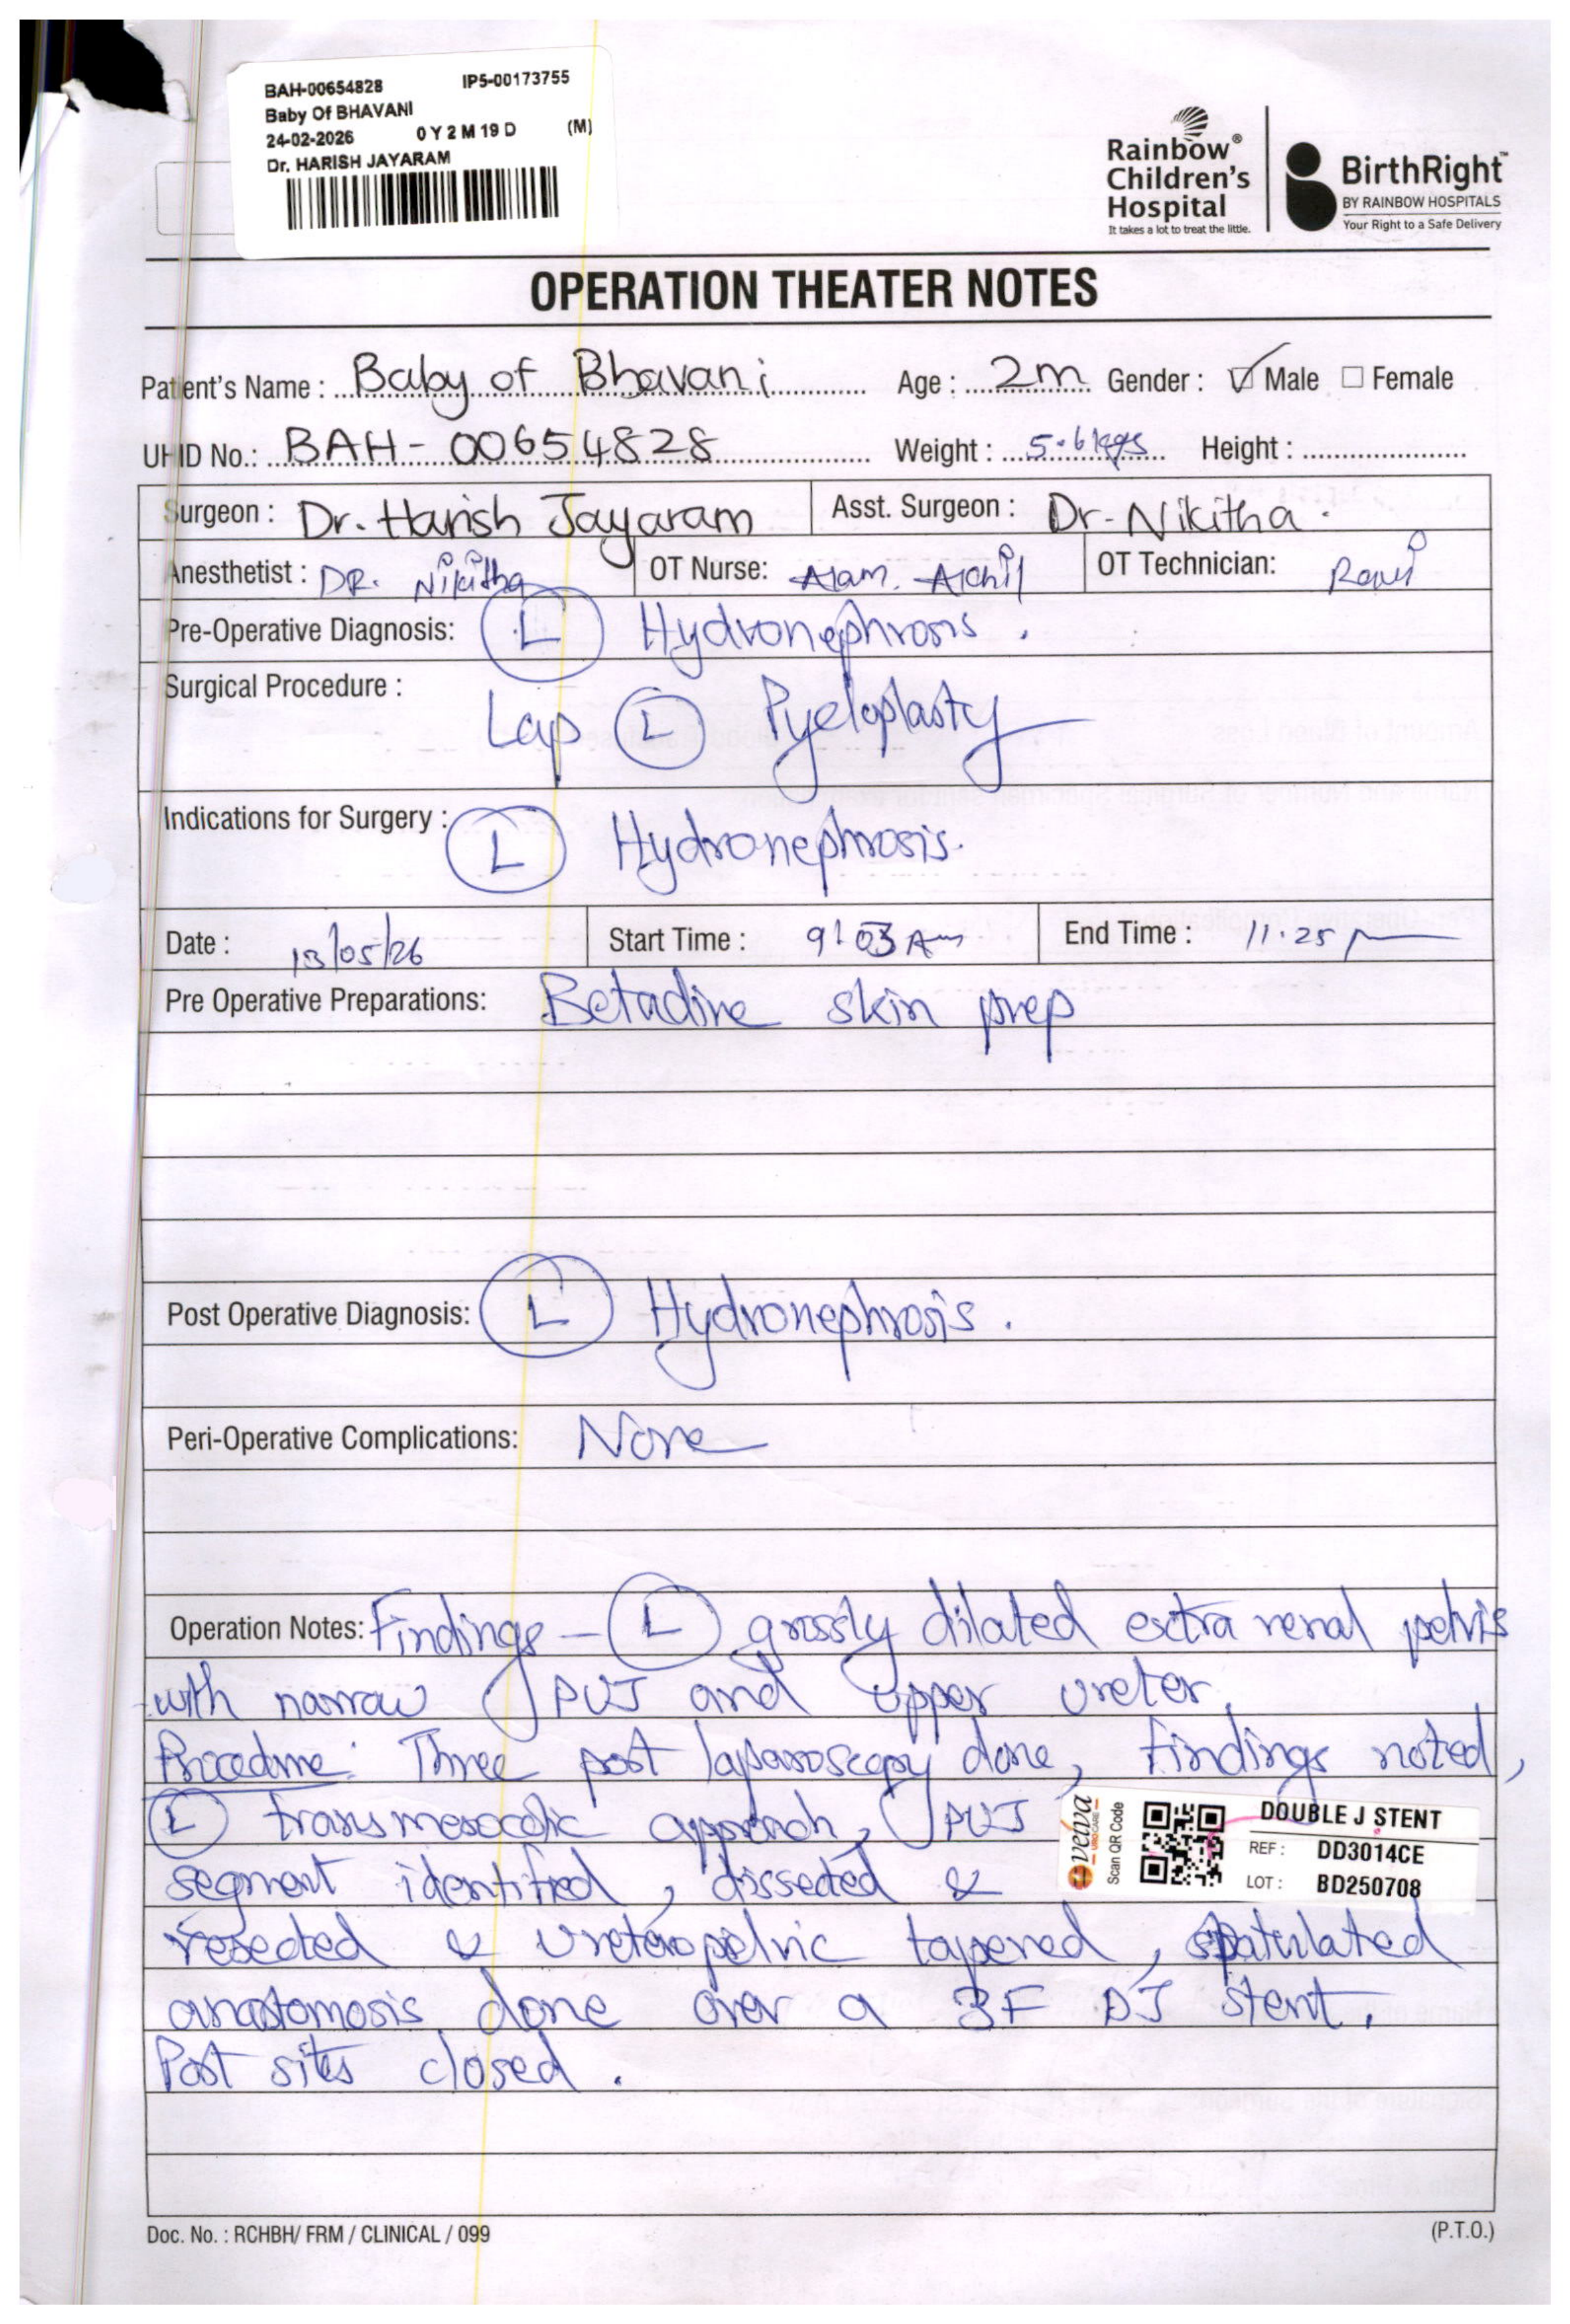 BAH-00654828 IP5-00173755
Baby Of BHAVANI
24-02-2026 0 Y 2 M 19 D (M)
Dr. HARISH JAYARAM
Rainbow®
Children's
Hospital
It takes a lot to treat the little.
BirthRight™
BY RAINBOW HOSPITALS
Your Right to a Safe Delivery
OPERATION THEATER NOTES
Patient's Name : Baby of Bhavani Age : 2m Gender : ☑ Male ☐ Female
UHID No.: BAH - 00654828 Weight : 5.6 kgs Height :
Surgeon : Dr. Harish Jayaram Asst. Surgeon : Dr. Nikitha.
Anesthetist : DR. Nikitha OT Nurse: OT Technician:
Pre-Operative Diagnosis: (L) Hydronephrosis.
Surgical Procedure :
Lap (L) Pyeloplasty
Indications for Surgery : (L) Hydronephrosis.
Date : 13/05/26 Start Time : 9:03 Am End Time : 11.25
Pre Operative Preparations: Betadine skin prep
Post Operative Diagnosis: (L) Hydronephrosis.
Peri-Operative Complications: None
Operation Notes: Findings - (L) grossly dilated extra renal pelvis
with narrow PUJ and upper ureter.
Procedure: Three port laparoscopy done, findings noted,
(L) transmesocolic approach, PUJ
segment identified, dissected &
resected & ureteropelvic tapered, spatulated
anastomosis done over a 3F DJ stent.
Port sites closed.
velva
UROCARE
Scan QR Code
DOUBLE J STENT
REF : DD3014CE
LOT : BD250708
Doc. No. : RCHBH/ FRM / CLINICAL / 099 (P.T.O.)